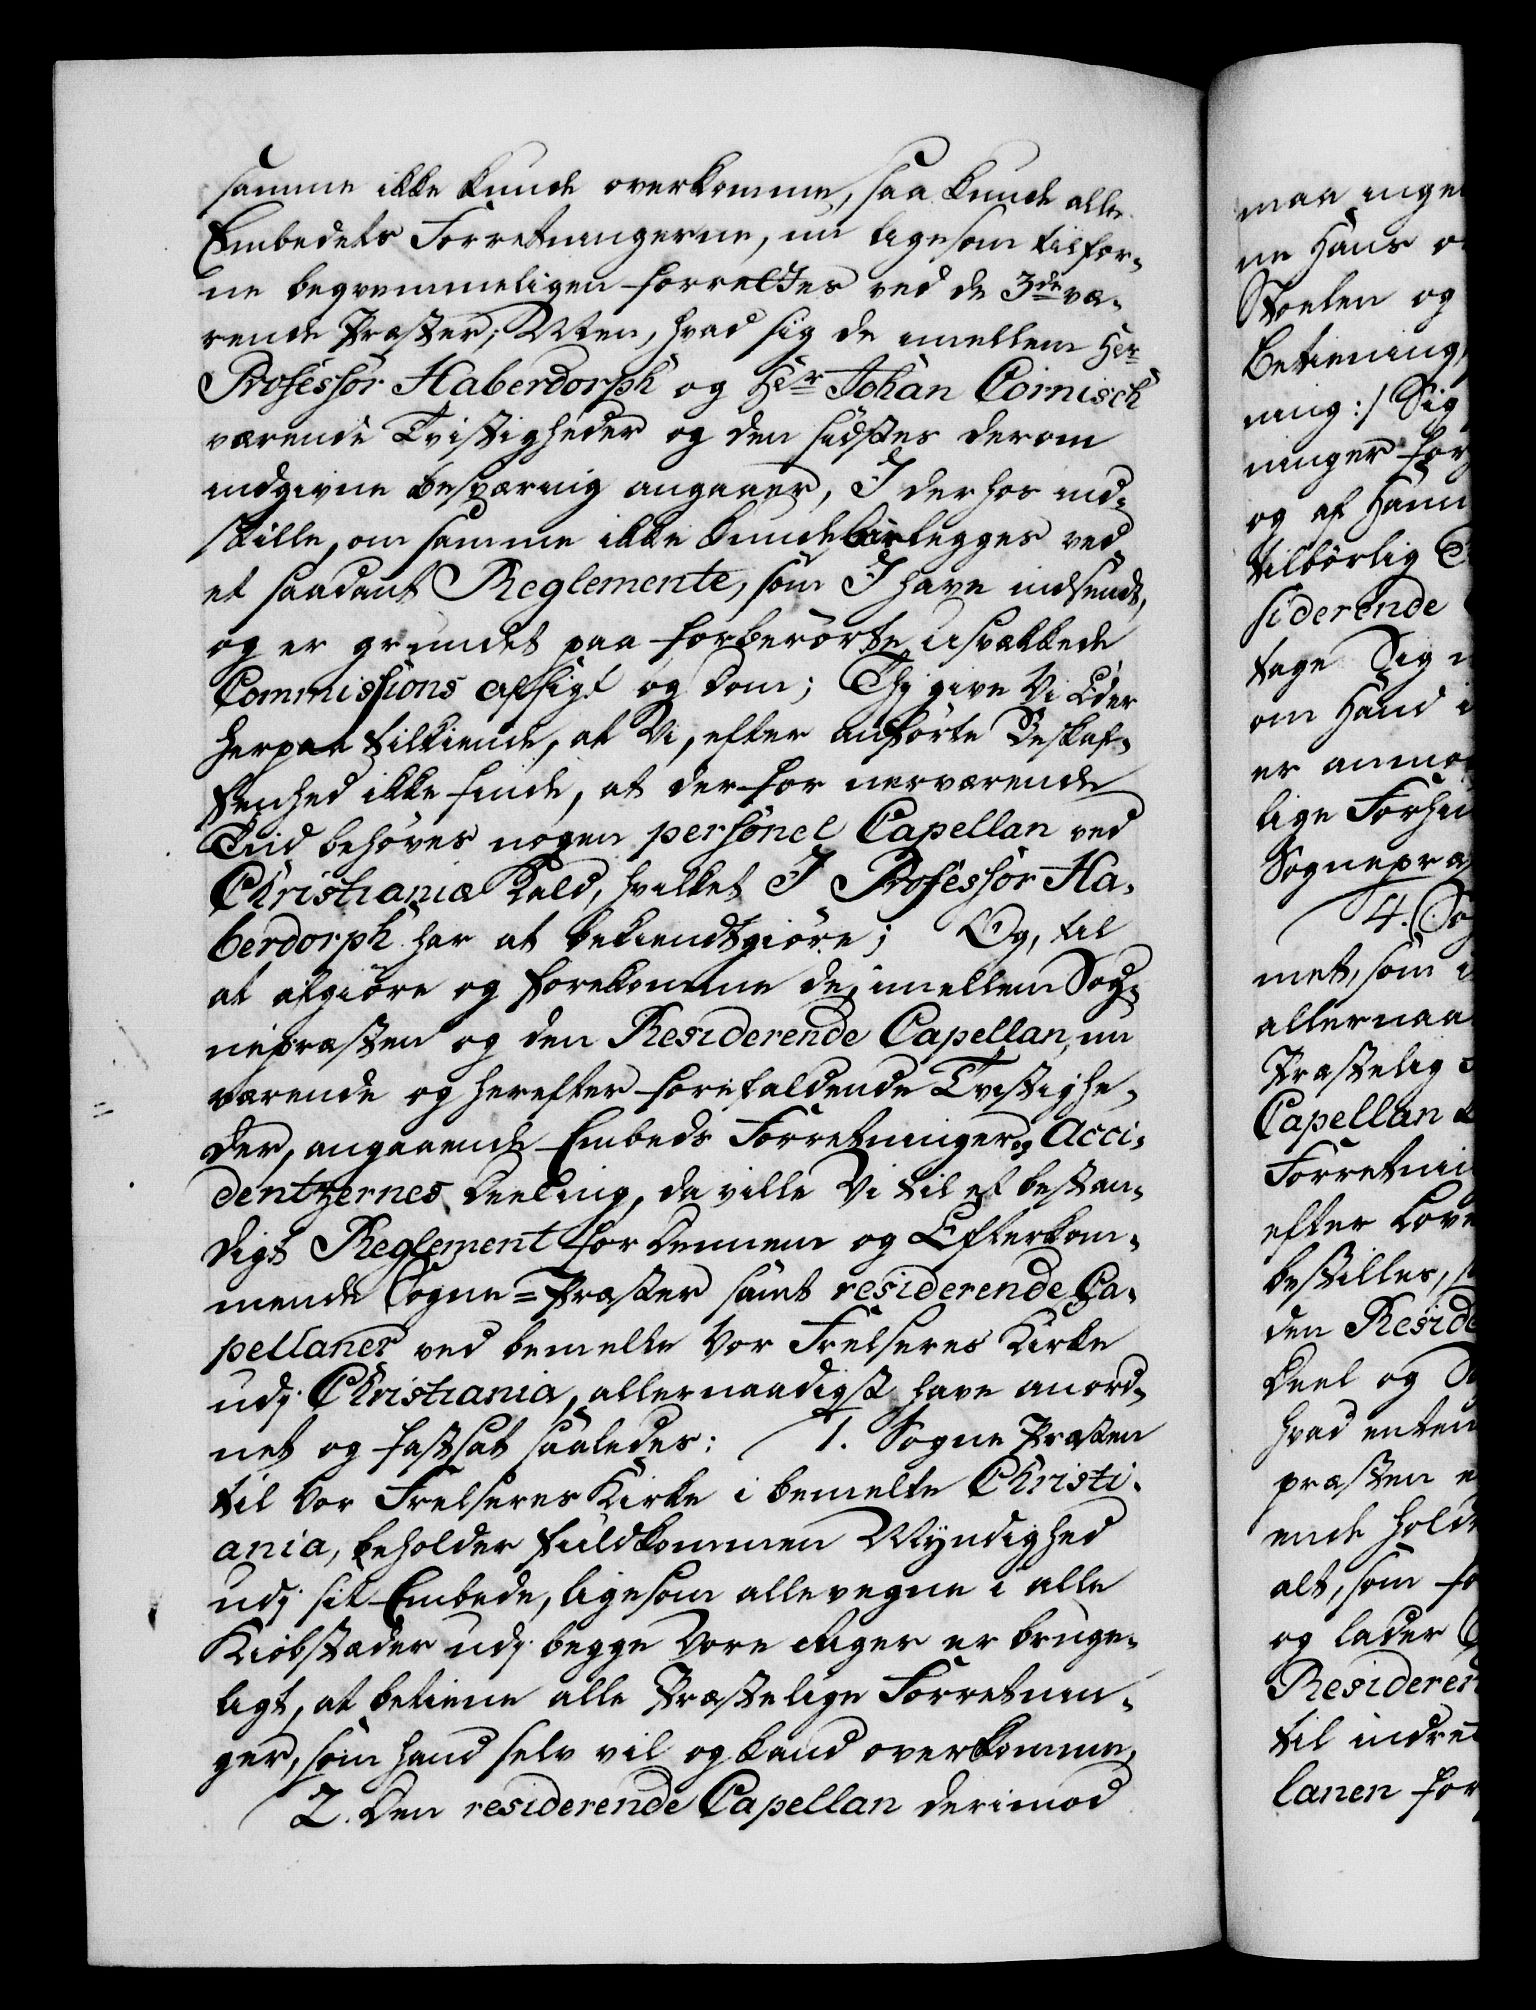 samme ikke kunde overkomme, saa kunde alle
Embedets Forretningerne, nu ligesom tilfor-
ne beqvemmeligen forrettes ved de 3de væ-
rende Præster; Men, hvad sig de imellem Hr
Professor Haberdorph og Hr Johan Cornisch
værende Tvistigheder og den sidstes derom
indgivne besværing angaaer, I derhos ind-
stille, om samme ikke kunde bielegges ved
et saadant Reglemente, som I have indsendt,
og er grundet paa forberørte usvækkede
Commissions afsigt og dom; Thj give Vi Eder
herpaa tilkiende, at Vi, efter anførte Beskaf-
fenhed ikke finde, at der for nerværende
Tiid behøves nogen personel Capellan ved
Christianiæ Kald, hvilket I Professor Ha-
berdorph har at bekiendtgiøre; Og, til
at afgiøre og forekomme de, imellem Sog-
nepræsten og den Residerende Capellan, nu
værende og herefter forefaldende Tvistighe-
der, angaaende Embeds Forretninger og Acci-
dentzernes Deeling, da ville Vi til et bestan-
digt Reglement for dennem og Efterkom-
mende Sogne-Præster samt residerende Ca-
pellaner ved bemelte Vor Frelseres Kirke
udj Christiania, allernaadigst have anord-
net og fastsat saaledes: 1. Sogne Præsten
til Vor Frelseres Kirke i bemelte Christi-
ania, beholder fuldkommen Myndighed
udj sit Embede, ligesom allevegne i alle
Kiøbstæder udj begge Vore Riger er bruge-
ligt, at betiene alle Præstelige Forretnin-
ger, som hand selv vil og kand overkomme,
2. Den residerende Capellan derimod
maa inge
ne Hans o
Stoelen og
Betiening
ning :/ Sig
ninger for
og af Hann
tilbørlig
siderende
tage Sig
om Hand i
er anmo
lige Forhin
Sognepræ
4. So
met, som i
allernaa
Præstelig
Capellan
Forretnin
efter Lov
bestilles,
den Reside
Deel og
hvad enten
præsten e
ende hold
alt, som fo
og lader
Residere
til indre
lanen for